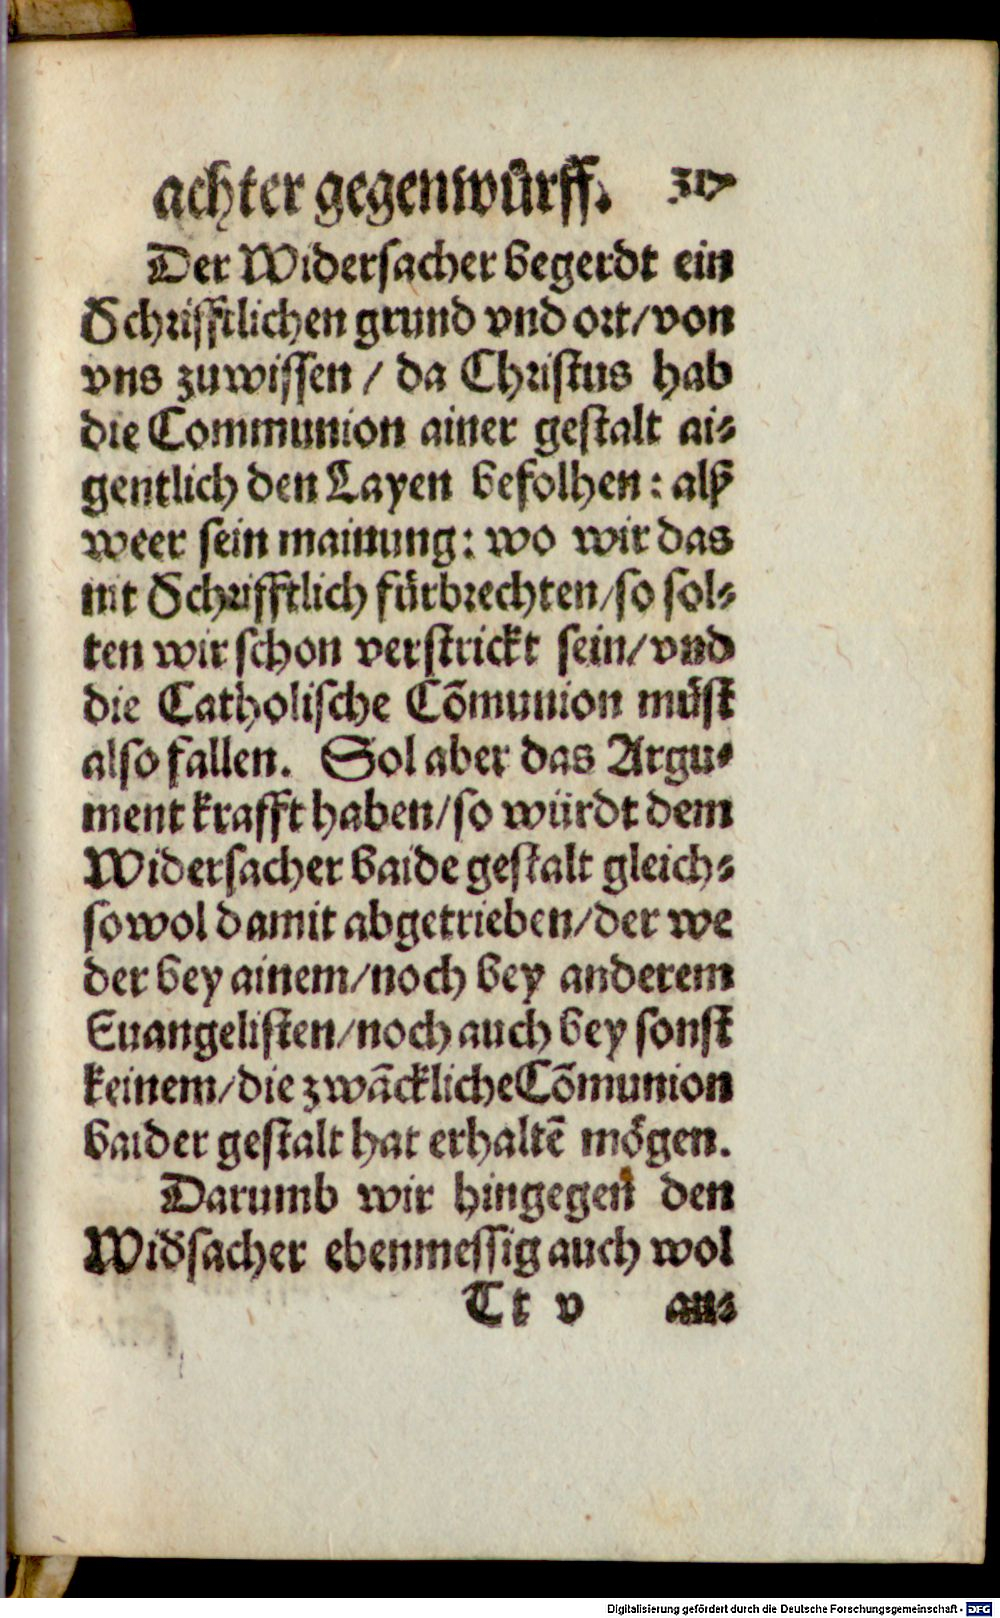 achter gegenwürff. 317
Der Widersacher begerdt ein
Schrifftlichen grund vnd ort/von
vns zuwissen / da Christus hab
die Communion ainer gestalt ai⸗
gentlich den Layen befolhen: alß
weer sein mainung: wo wir das
nit Schrifftlich fürbrechten/so sol⸗
ten wir schon verstrickt sein/vnd
die Catholische Cõmunion müst
also fallen. Sol aber das Argu⸗
ment krafft haben/so würdt dem
Widersacher baide gestalt gleich⸗
sowol damit abgetrieben/der we
der bey ainem/noch bey anderem
Euangelisten/noch auch bey sonst
keinem/die zwãckliche Cõmunion
baider gestalt hat erhaltẽ mögen.
Darumb wir hingegen den
Widsacher ebenmessig auch wol
Tt v an⸗
Digitalisierung gefördert durch die Deutsche Forschungsgemeinschaft - DFG